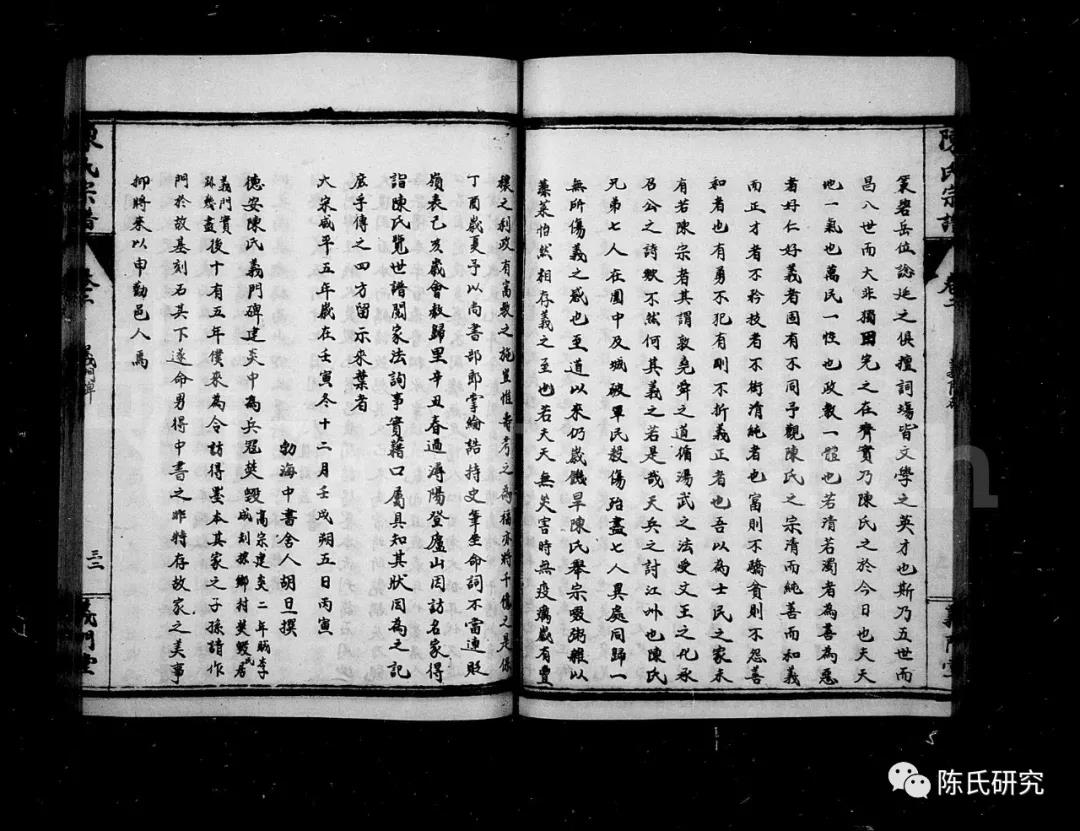 陳氏宗譜
卷二
義門碑
義門堂
策碧岳位諗延之俱擅詞場皆文學之英才也斯乃五世而
昌八世而大非獨田完之在齊實乃陳氏之於今日也夫天
地一氣也萬民一性也政教一體也若清若濁者為善為惡
者好仁好義者固有不同予觀陳氏之宗清而純善而和義
而正才者不矜技者不衒清純者也富則不驕貧則不怨善
和者也有勇不犯有剛不折義正者也吾以為士民之家未
有若陳宗者其謂敦堯舜之道循湯武之法受文王之化承
召公之詩歟不然何其義之若是哉天兵之討江州也陳氏
兄弟七人在圍中及城破軍民殺傷殆盡七人異處同歸一
無所傷義之感也至道以來仍歲饑旱陳氏舉宗啜粥雜以
藻菜怡然相存義之至也若夫天無災害時無疫癘歲有豐
穰之利政有富教之施豈惟壽考之為福亦將千億之是保
丁酉歲夏予以尚書部郎掌綸誥持史筆坐命詞不當連貶
嶺表己亥歲會赦歸里辛丑春過潯陽登廬山因訪名家得
詣陳氏覽世譜閱家法詢事實藉口屬具知其狀因為之記
庶乎傳之四方留示來葉者
大宋咸平五年歲在壬寅冬十二月壬戌朔五日丙寅
勃海中書舍人胡旦撰
德安陳氏義門碑建炎中為兵冠焚毀高宗建炎二年賊李成刼掠鄉村焚毀民居
義門實孫幾盡後十有五年僕來為令訪得墨本其家之子孫請作
門於故基刻石其下遂命男得中書之非特存故家之美事
抑將來以申勸邑人焉
陳氏宗譜
卷二
義門碑
三二
義門堂
陈氏研究